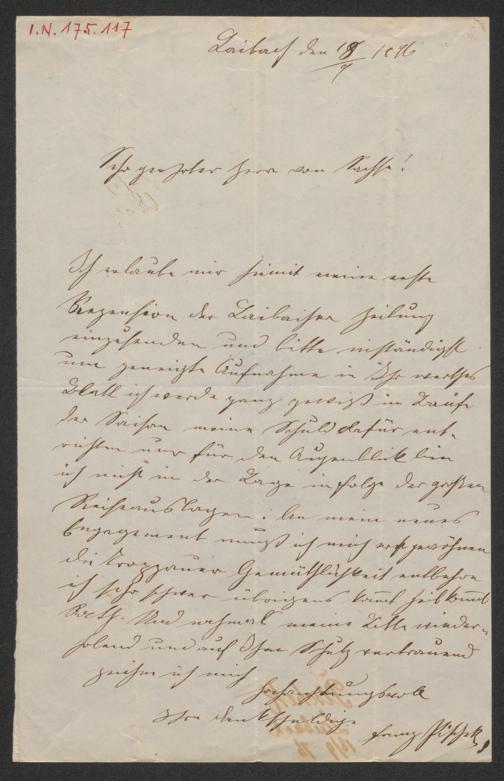 I.N. 175.117
Laibach den 18/9 1876
Sehr geehrter Herr von Sachse!
Ich erlaube mir hiemit meine erste
Rezension der Laibacher Zeitung
einzusenden und bitte inständigst
um geneigte Aufnahme in Ihr werthes
Blatt ich werde ganz gewiß im Laufe
der Saison meine Schuld dafür ent-
richten nur für den Augenblick bin
ich nicht in der Lage infolge der großen
Reiseauslagen. An mein neues
Engagement muß ich mich erst gewöhnen
die Troppauer Gemüthlichkeit entbehre
ich sehr schwer übrigens kommt Zeit kommt
Rath. Und nochmal meine Bitte wieder-
holend und auf Ihren Schutz vertrauend
zeichne ich mich
hochachtungsvoll
Ihr dankschuldige